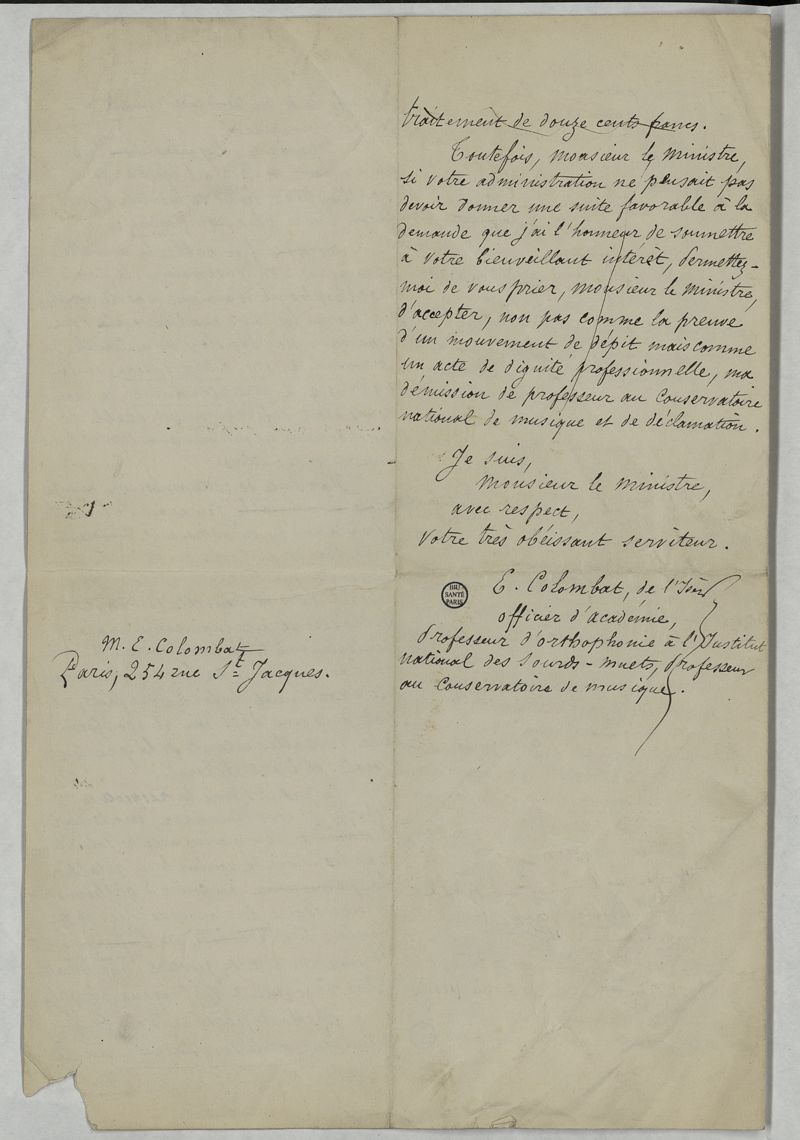 traitement de douze cents francs.
Toutefois, monsieur le ministre,
si votre administration ne pensait pas
devoir donner une suite favorable à la
demande que j'ai l'honneur de soumettre
à votre bienveillant intérêt, permettez-
moi de vous prier, monsieur le ministre,
d'accepter, non pas comme la preuve
d'un mouvement de dépit mais comme
un acte de dignité professionnelle, ma
démission de professeur au Conservatoire
national de musique et de déclamation.
Je suis,
monsieur le ministre,
avec respect,
votre très obéissant serviteur.
E. Colombat, de l'Isère
officier d'académie,
professeur d'orthophonie à l'Institut
national des Sourds-muets, professeur
au Conservatoire de musique.
BIU
SANTÉ
PARIS
M. E. Colombat
Paris, 254 rue St Jacques.